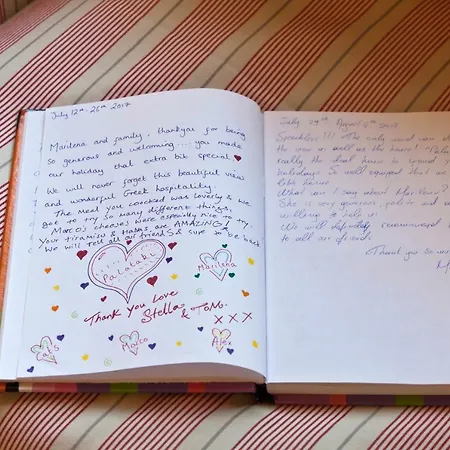 July 12th - 26th 2017
Marilena and family, thankyou for being
so generous and welcoming.... you made
our holiday that extra bit special
We will never forget this beautiful view
and wonderful Greek hospitality.
The meal you coocked was loverly & we
got to try so many different things,
Marco's cheeses were especily nice to try,
Your tiramisu & are AMAZING!!
We will tell all our friends & sure to be back
Marilena
Thank You Love
Stella
& Tom.
X X X
Marco
Alex
July 29th August 2017
Speachless!!! The only word
the view as well as the house!
really the ideal house to spend
holidays. So well equipped that
What can I say about Marilena?
She is very generous, polite and
willing to help us.
We will definitely recommend
to all our friends.
Thank you so